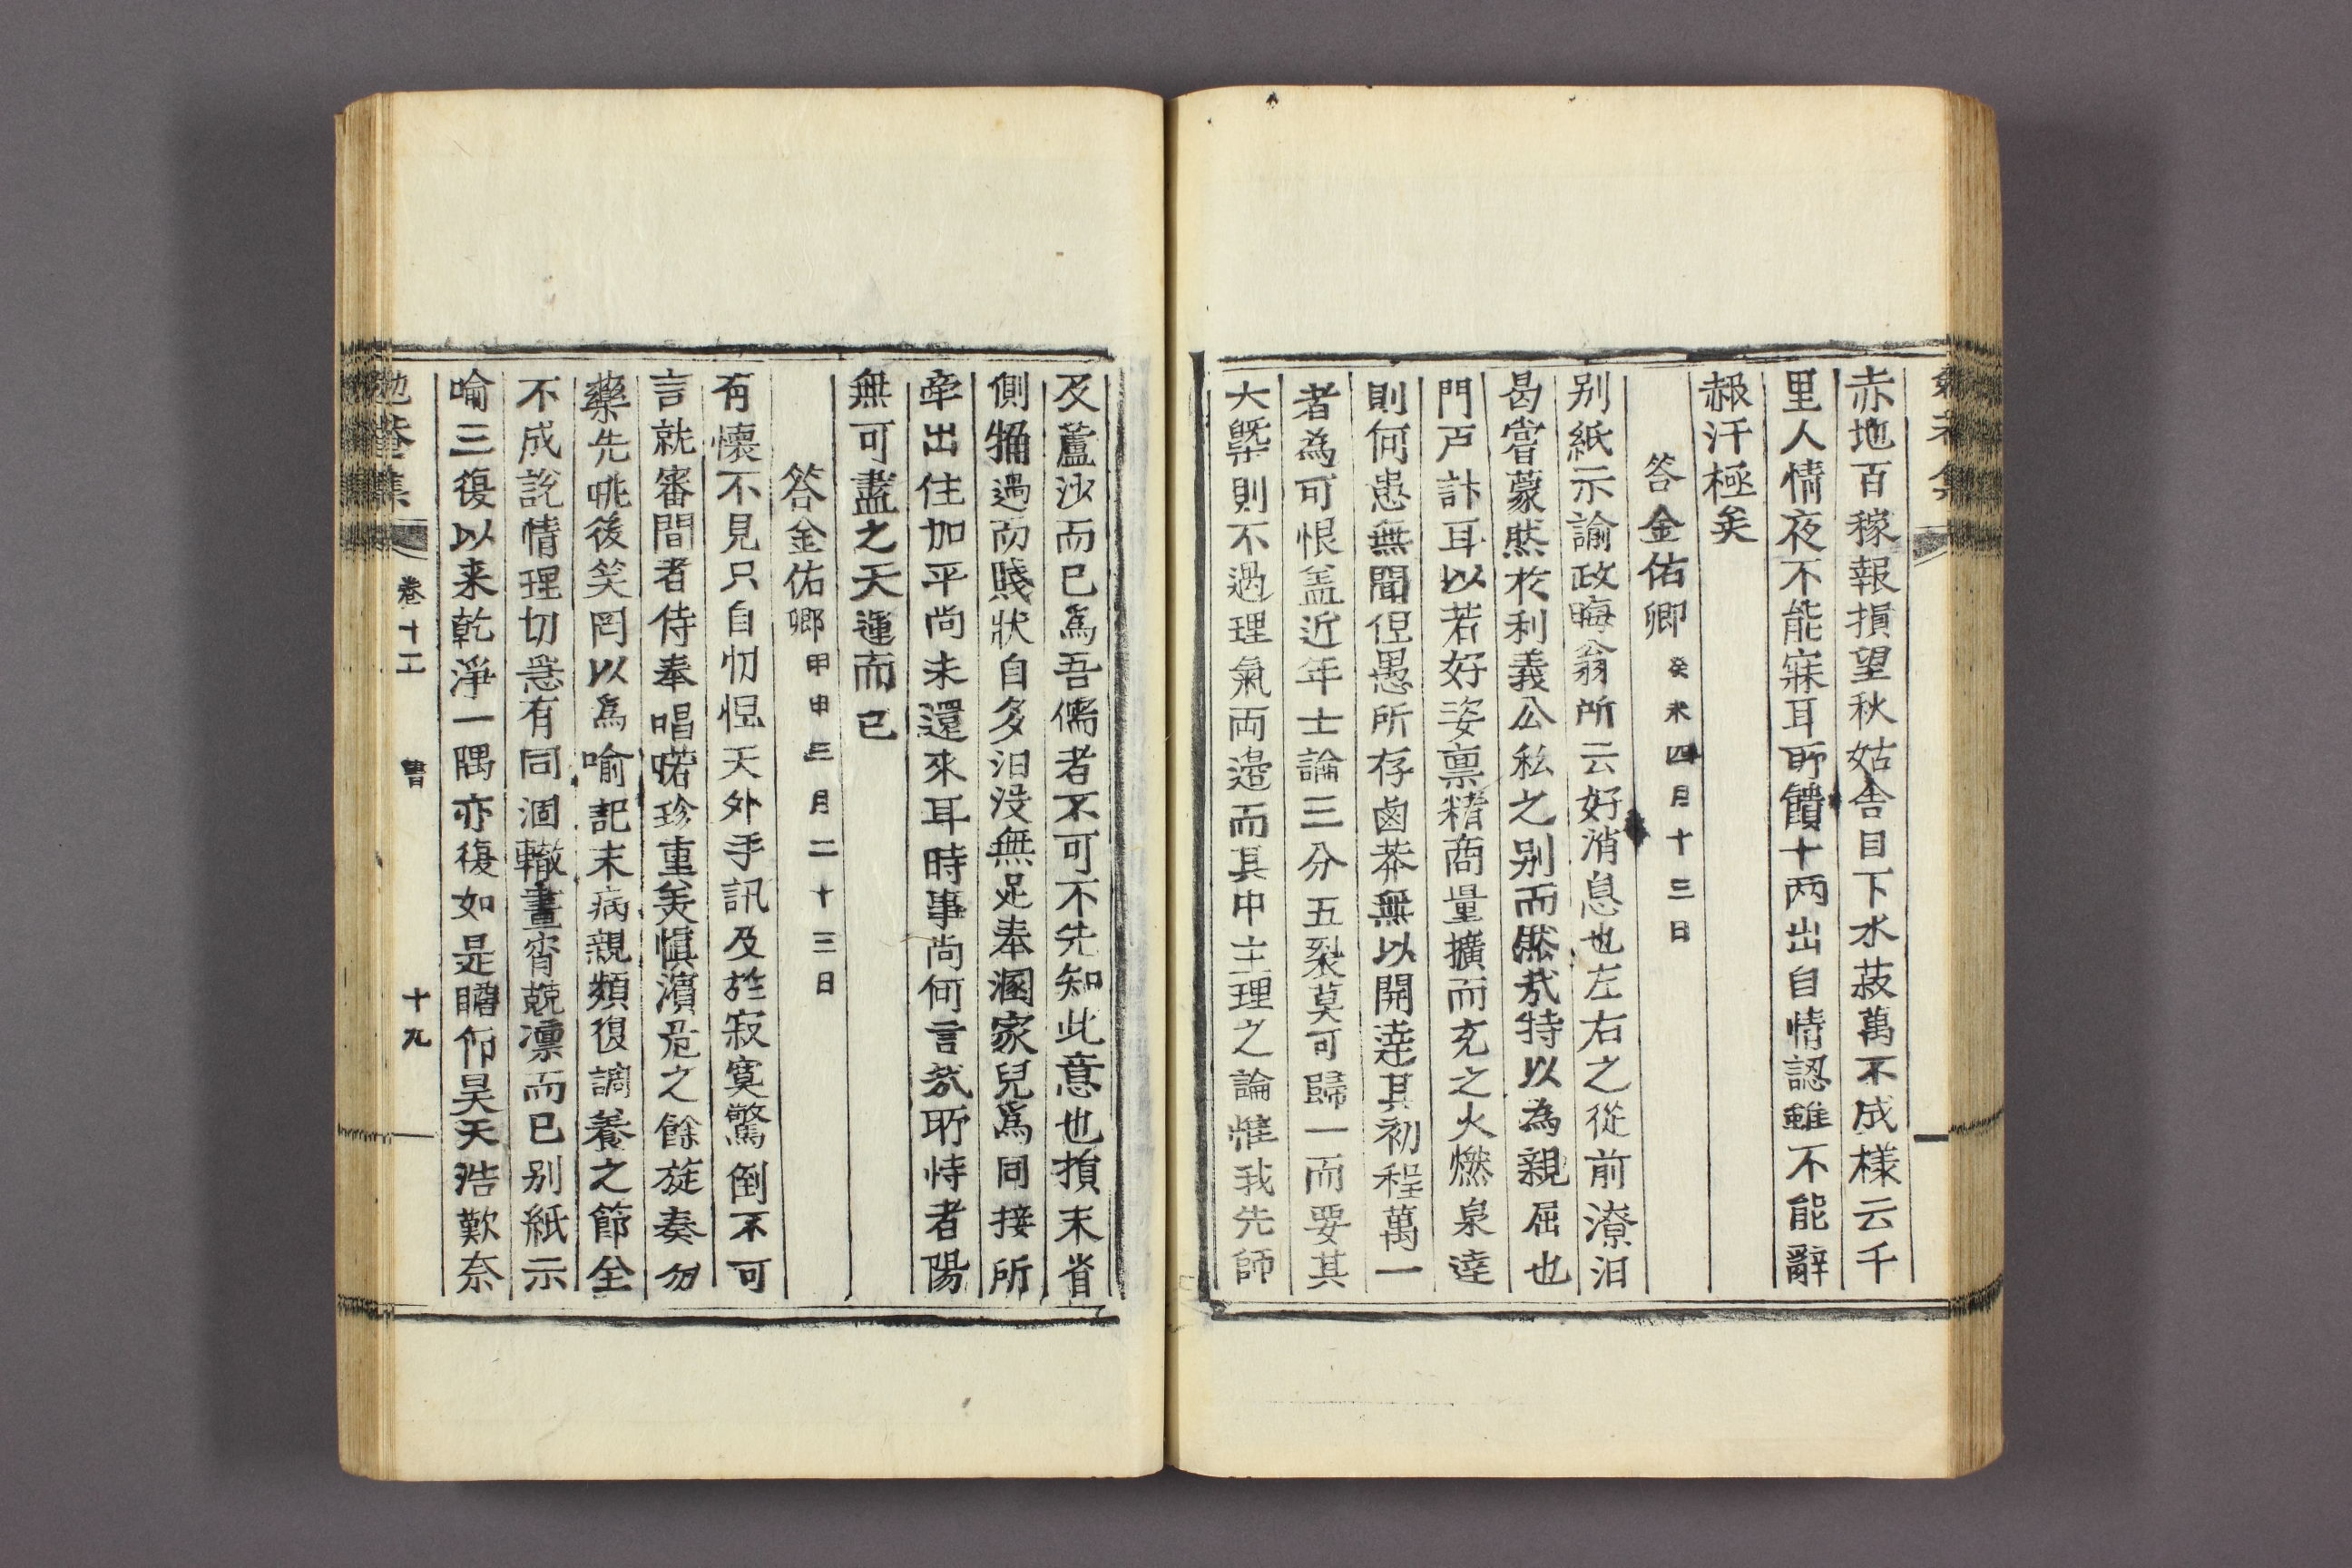 赤地百稼報損望秋姑舍目下水菽萬不成樣云千
里人情夜不能寐耳所饋十两出自情認雖不能辭
赧汗極矣
答金佑卿癸未四月十三日
别紙示諭政晦翁所云好消息也左右之從前潦汩
曷嘗蒙然於利義公私之别而然哉特以為親屈也
門戶計耳以若好姿禀精商量擴而充之火燃泉達
則何患無聞但愚所存鹵莽無以開達其初程萬一
者為可恨盖近年士論三分五裂莫可歸一而要其
大槩則不過理氣両邊而其中主理之論惟我先師
及蘆沙而已爲吾儒者不可不先知此意也損末省
側狦過而賤狀自多汩没無足奉溷家兒爲同接所
牽出住加平尚未還來耳時事尚何言哉所恃者陽
無可盡之天運而已
答金佑卿甲申三月二十三日
有懷不見只自忉怛天外手訊及於寂寞驚倒不可
言就審間者侍奉唱喏珍重美愼濱危之餘旋奏勿
藥先咷後笑罔以爲喻記末病親頻復調養之節全
不成說情理切急有同涸轍晝宵兢凛而已别紙示
喻三復以来乾淨一隅亦復如是瞻仰昊天浩歎奈
勉菴集 卷十工 書 十九